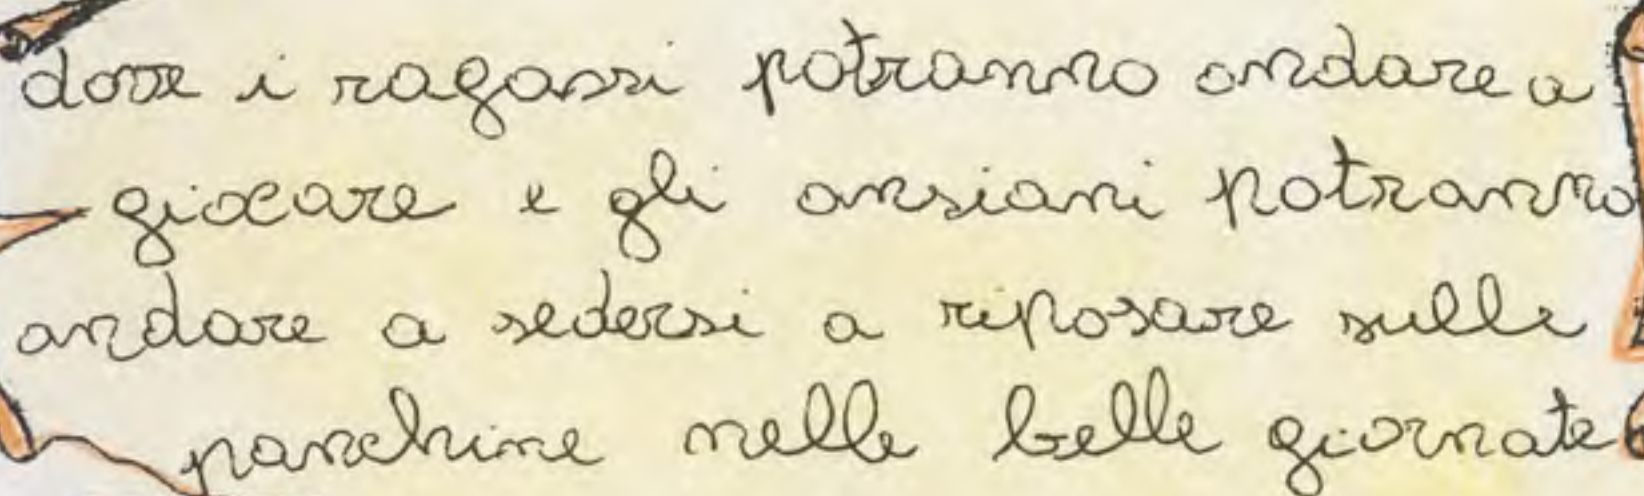 dove i ragassi potranno andare a
giocare e gli ansiani potranno
andare a sedersi a riposare sulle
panchine nelle belle giornate